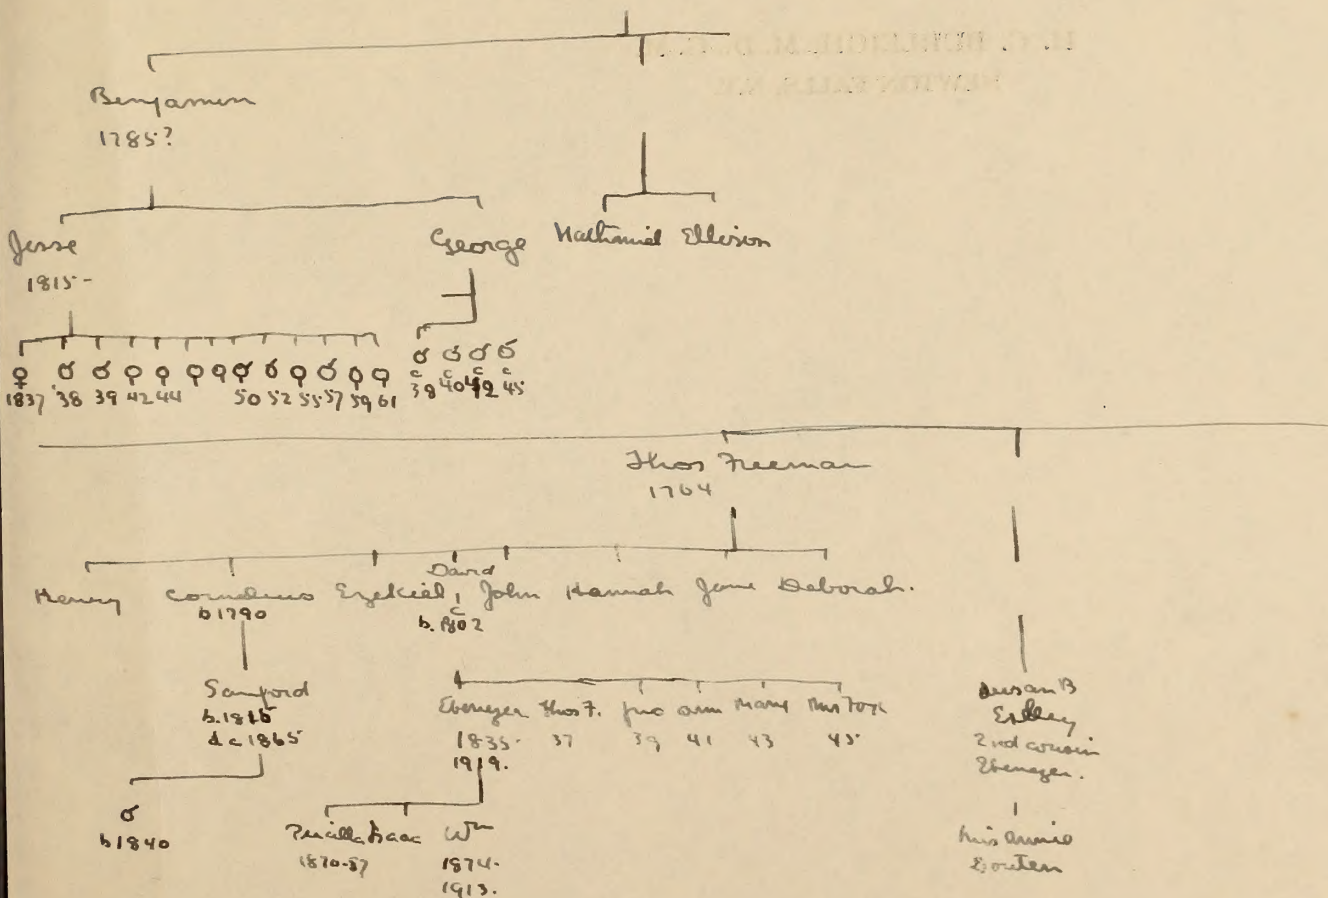 Benjamin
1785?
Jesse
1815-
George
Nathaniel Ellison
♀ ♂ ♂ ♀ ♀ ♀ ♀ ♂ ♂ ♀ ♂ ♀ ♀
1837 '38 39 42 44 50 52 55 57 59 61
♂ ♂ ♂ ♂
c c c c
38 40 42 45
Thos Freeman
1764
Henry Cornelius Ezekiel, David John Hannah Jane Deborah.
b 1790
c
b. 1802
Sanford
b.
d c 1865
♂
b 1840
Ebenezer Thos F. Jno Ann Mary Mrs
1835- 37 39 41 43 45
1919.
Isaac Wm
1870-87
1874-
1913.
Susan B
2nd cousin
Ebenezer.
Mrs Annie